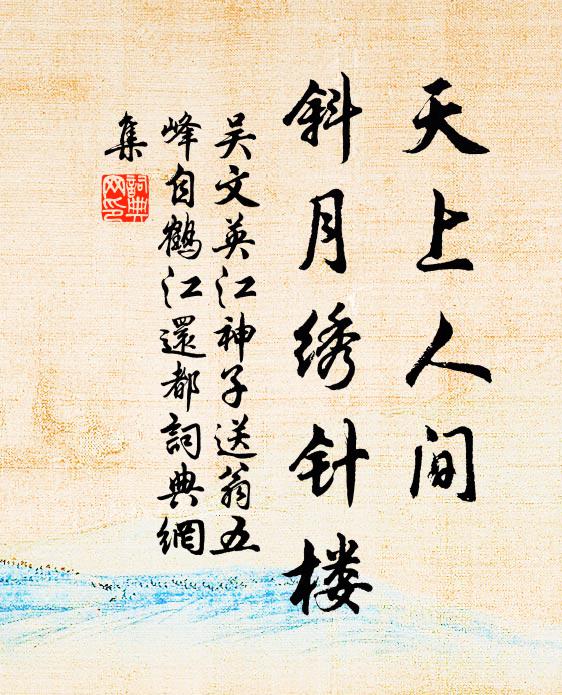 天上人间
斜月绣针楼
吴文英江神子送翁五
峰自鹤江還都詞典網
集
詞典
网印